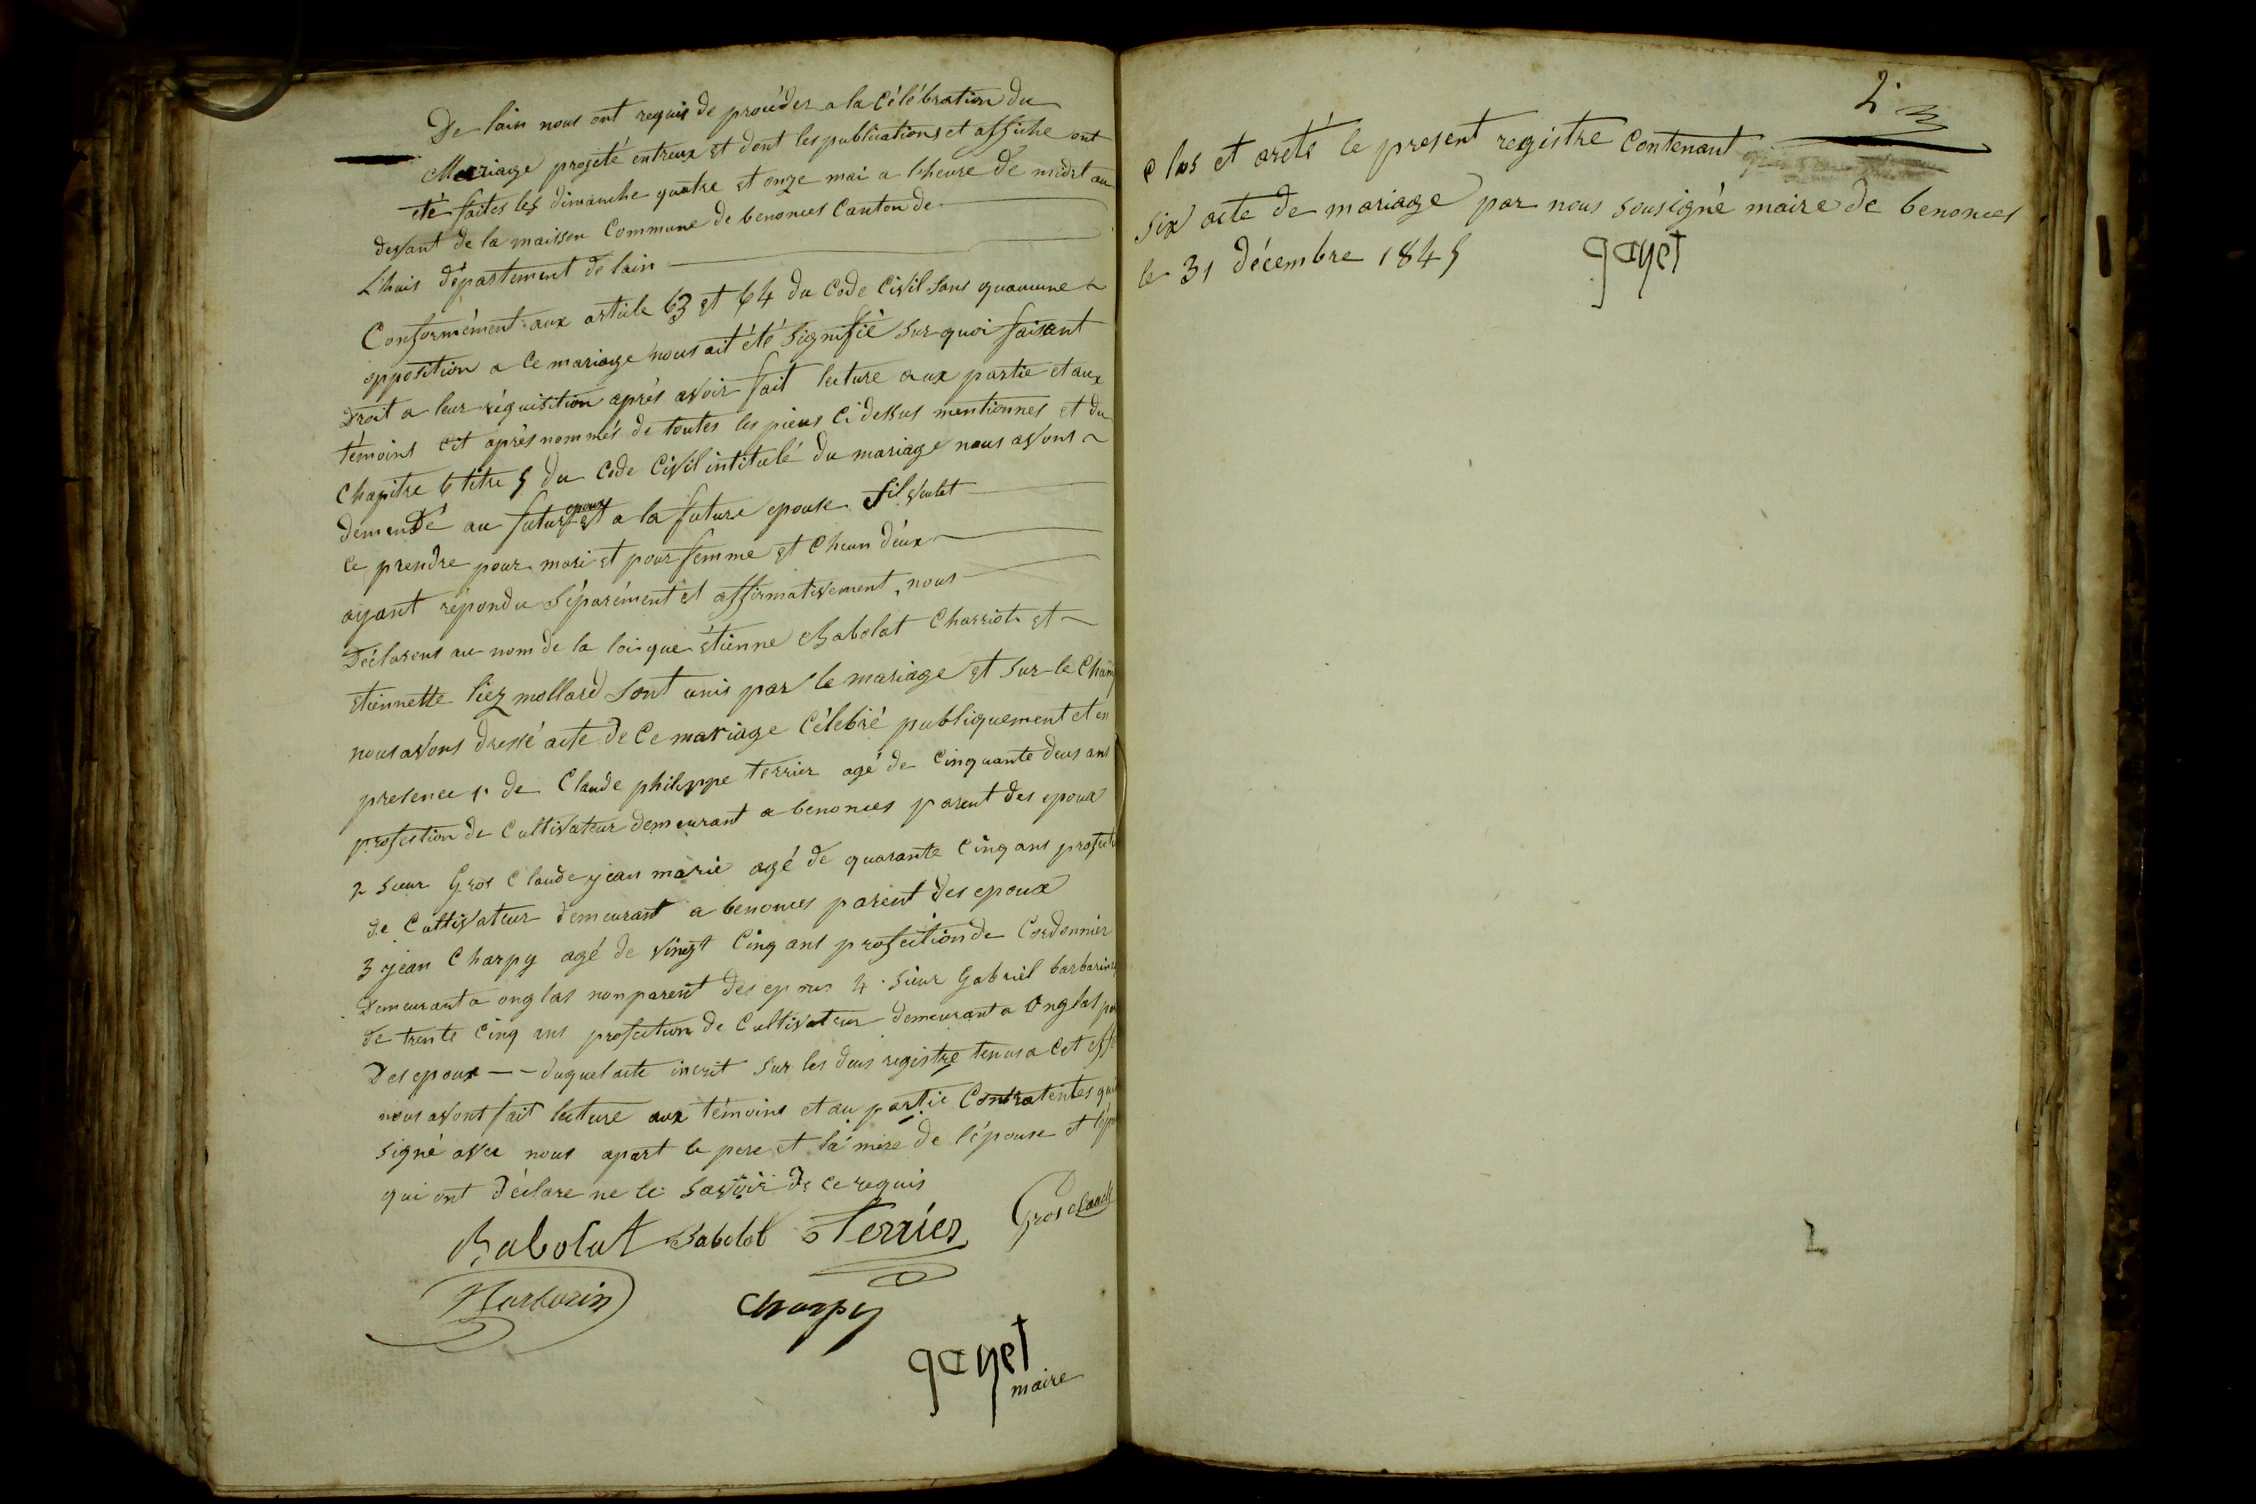 De lain nous ont requis de procéder a la Célébration du
Mariage projeté entreux et dont les publications et affiche ont
été faites les dimanche quatre et onze mai a l'heure de midi au
devant de la maison Commune de benonces Canton de
L'huis département de lain
Conformément aux article 63 et 64 du Code Civil sans quaucune
opposition a ce mariage nous ait été signifié sur quoi faisant
droit a leur réquisition après avoir fait lecture aux partie et aux
témoins cit après nommés de toutes les pieces ci dessus mentionnes et du
Chapitre 6 titre 5 du Code Civil intitulé du mariage nous avons
demendé au futur epoux et a la future epouse sil veulet
ce prendre pour mari et pour femme et Chcun déux
ayant répondu séparément et affirmativement, nous
Déclarons au nom de la loi que étienne Babolat Charriot et
etiennette liez mollard sont unis par le mariage et sur le Champ
nous avons dressé acte de ce mariage célebré publiquement et en
presence 1. de Claude philippe terrier agé de cinquante deus ans
profession de Cultivateur demeurant a benonces parent des epoux
2 sieur Gros Claude jean marie agé de quarante cinq ans
de Cultivateur demeurant a benonces parent des epoux
3 jean Charpy agé de vingt cinq ans profection de Cordonnier
Demeurant a onglas non parent des epous 4. sieur Gabriel barbarin
de trente cinq ans profection de Cultivateur demeurant a Onglas
Des epoux — duquel acte incrit sur les deus registre tenus a cet
nous avont fait lecture aux témoins et au partie Contratentes
signé avec nous apart le pere et la mere de l'épouse et
qui ont déclare ne le savoir de ce requis
Babolat Babolat Terrier Gros Claude
Barbarin Charpy
gayet
maire
2
clos et arété le present registre Contenant
six acte de mariage par nous sousigné maire de benonces
le 31 décembre 1845 gayet